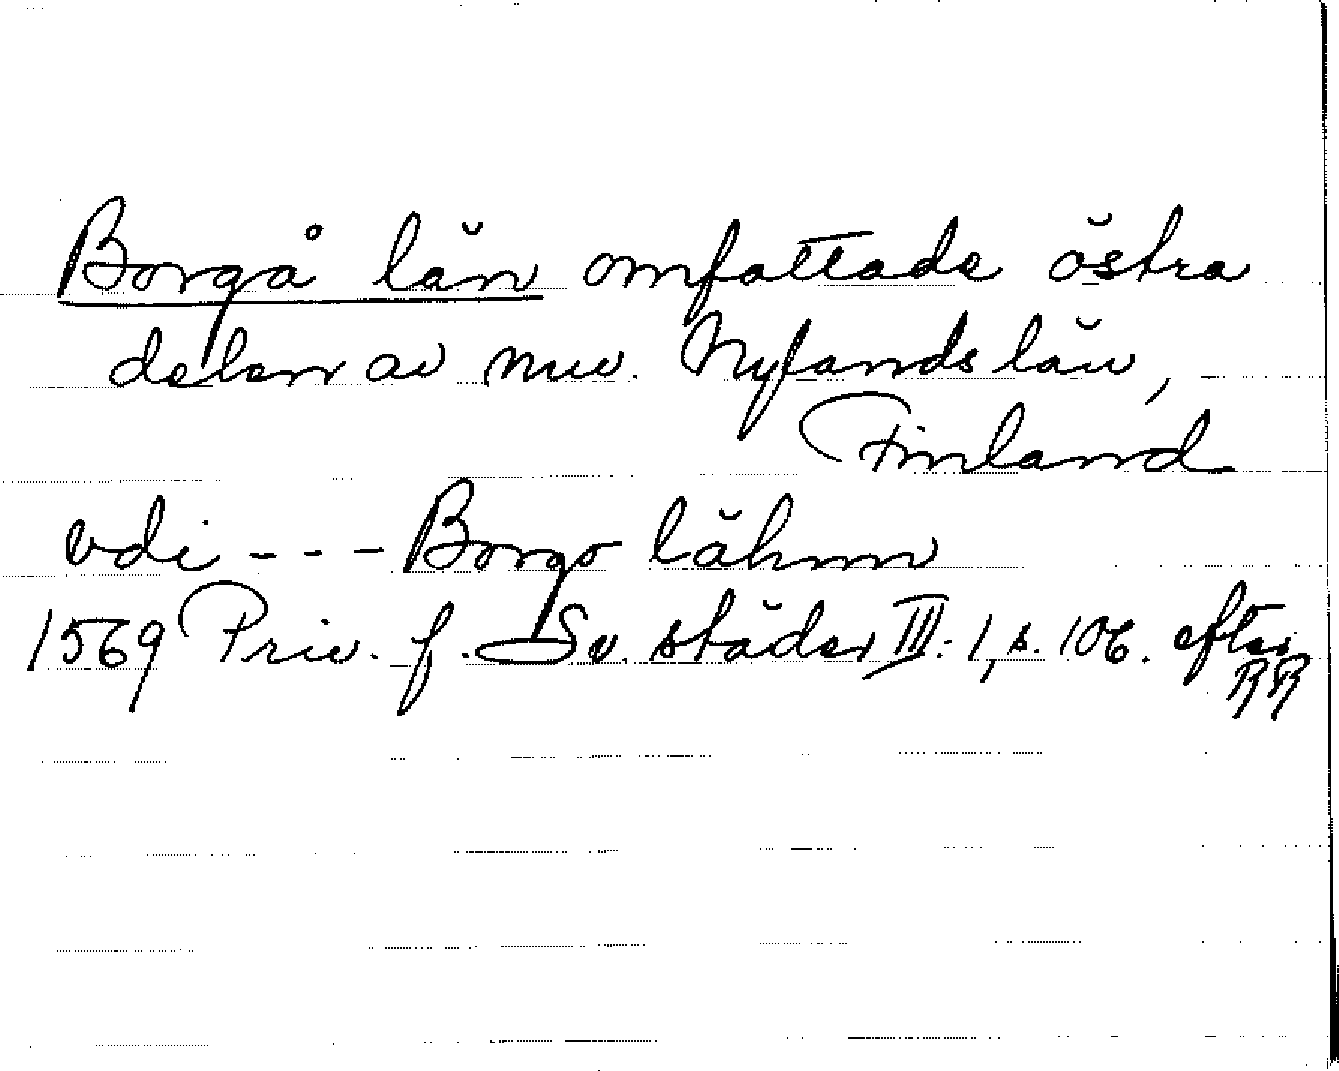 Borgå län omfattade östra
delen av nuv. Nylands län,
Finland
vdi --- Borgo lähnn
1569 Priv. f. Sv. städer III: 1, s. 106. efter
RR